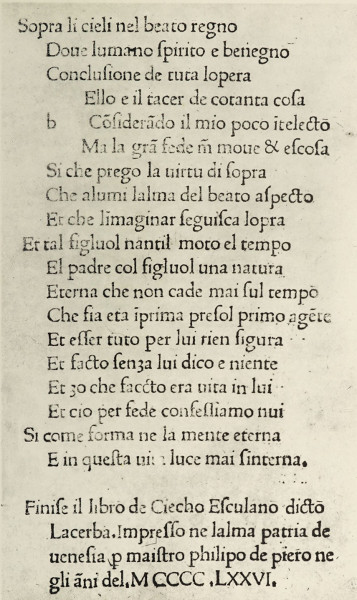 Sopra li cieli nel beato regno
Doue lumano spirito e benegno
Conclusione de tuta lopera
Ello e il tacer de cotanta cosa
b Cõsiderãdo il mio poco itelectõ
Ma la grã fede m̃ moue & escosa
Si che prego la uirtu di sopra
Che alumi lalma del beato aspecto
Et che limaginar seguisca lopra
Et tal figluol nantil moto el tempo
El padre col figluol una natura
Eterna che non cade mai sul tempo
Che fia eta iprima presol primo agẽte
Et esser tuto per lui rien figura
Et facto senza lui dico e niente
Et zo che faccto era uita in lui
Et cio per fede confessiamo nui
Si come forma ne la mente eterna
E in questa luce mai sinterna.
Finise il libro de Ciecho Esculano dictõ
Lacerba. Impresso ne lalma patria de
uenesia ꝑ maistro philipo de piero ne
gli ãni del. M CCCC . LXXVI.